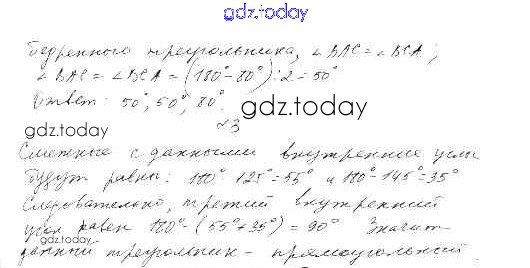 gdz.today
бедренного треугольника, ∠BAC = ∠BCA;
∠BAC = ∠BCA = (180° - 80°) : 2 = 50°
Ответ: 50°, 50°, 80°.
gdz.today
gdz.today
№3
Смежные с данными внутренние углы
будут равны: 180° 125° = 55° и 180° - 145° = 35°
Следовательно, третий внутренний
угол равен 180° - (55° + 35°) = 90° Значит
gdz.today
данный треугольник - прямоугольный